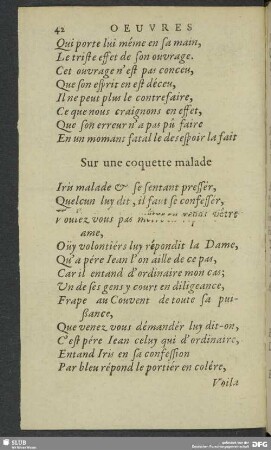 42 OEUVRES
Qui porte lui méme en sa main,
Le triste effet de son ouvrage.
Cet ouvrage n'est pas conceu,
Que son esprit en est déceu,
Il ne peut plus le contrefaire,
Ce que nous craignons en effet,
Que son erreur n'a pas pû faire
En un momant fatal le desespoir la fait
Sur une coquette malade
Iris malade & se sentant pressér,
Quelcun luy dit, il faut se confessér,
Voulez vous pas vôtre
ame,
Oüy volontiérs luy répondit la Dame,
Qu'a pére Iean l'on aille de ce pas,
Car il entand d'ordinaire mon cas;
Un de ses gens y court en diligeance,
Frape au Couvent de toute sa puissance,
Que venez vous démandér luy dit-on,
C'est pére Iean celuy qui d'ordinaire,
Entand Iris en sa confession
Par bleu répond le portiér en colére,
Voila
SLUB